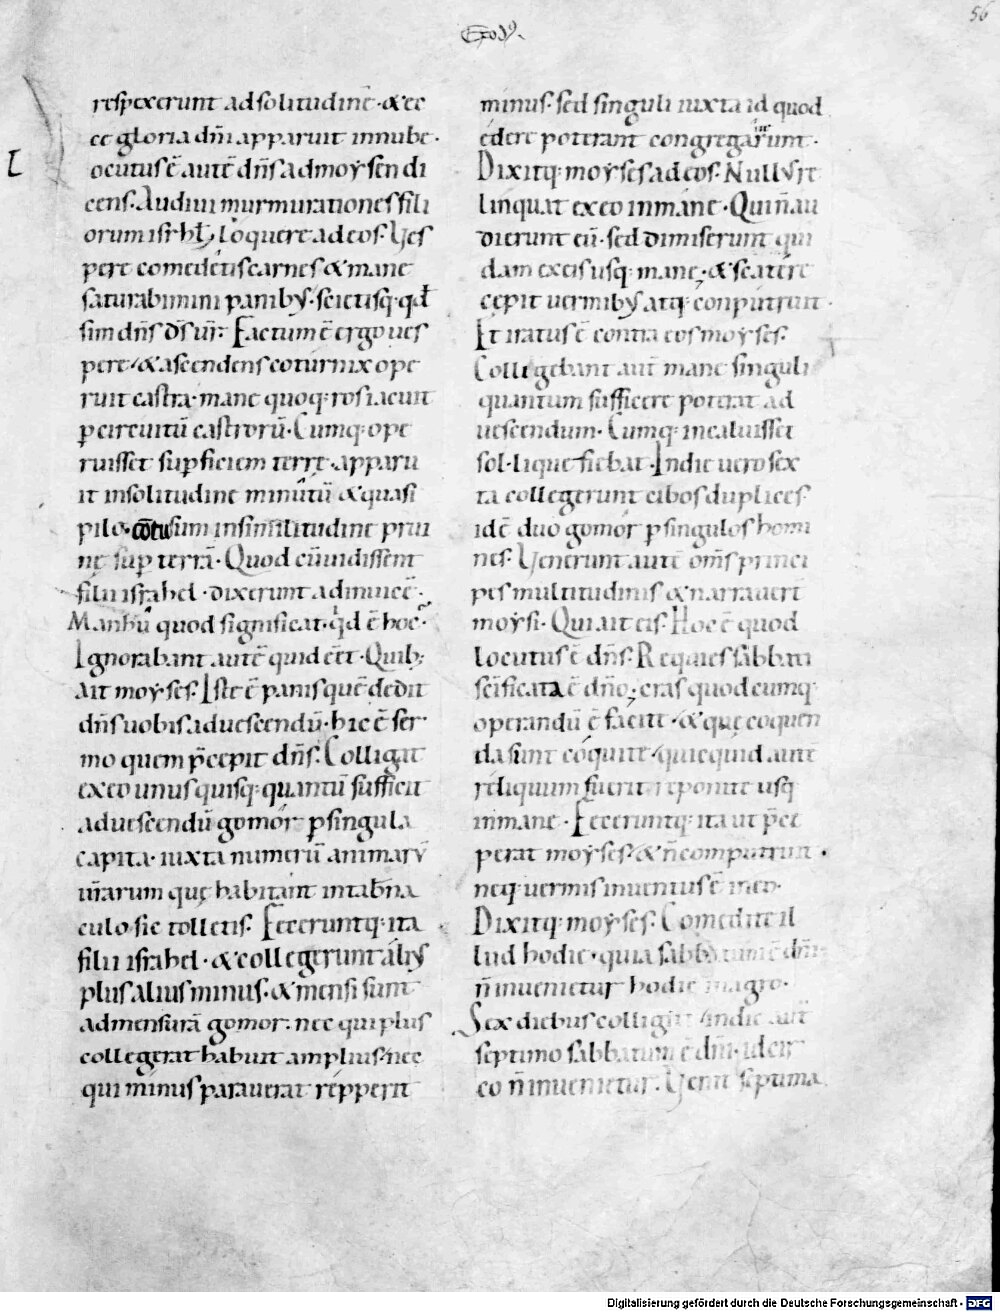 56
Exod9.
respexerunt ad solitudinē · & ec
ce gloria dn̄i apparuit in nube ·
Locutus ē autē dn̄s ad moysen di
cens. Audiui murmurationes fili
orum isrhƚ, loquere ad eos. Ves
pere comedetis carnes & mane
saturabimini panibꝰ. scietisq; qđ
sim dn̄s d̄s ur̄. Factum ē ergo ues
pere, & ascendens coturnix ope
ruit castra. mane quoq; ros iacuit
p circuitū castrorū. Cumq; ope
ruisset supficiem terrę. apparu
it insolitudine minutū & quasi
pilo. cōtusum insimilitudine prui
nę sup terrā. Quod cū uidissent
filii israhel. dixerunt adinuicē.
Manhu quod significat. qd ē hoc.
Ignorabant autē quid eēt. Quib;
ait moyses. Iste ē panis quē dedit
dn̄s uobis aduescendū. hic ē ser
mo quem p̄cepit dn̄s. Colligat
ex eo unus quisq; quantū sufficit
aduescendū gomor p singula
capita. iuxta numerū animarū
ur̄arum quę habitant intab̄na
culo sic tolletis. Feceruntq; ita
filii israhel. & collegerunt aliꝰ
plus alius minus. & mensi sunt
admensurā gomor. nec qui plus
collegerat habuit amplius. nec
qui minus parauerat repperit
minus. sed singuli iuxta id quod
edere poterant congregarunt.
Dixitq; moyses ad eos. Nullus re
linquat ex eo inmane. Qui n̄ au
dierunt eū. sed dimiserunt qui
dam ex eis usq; mane; & scatere
cepit uermibꝰ atq; conputruit.
Et iratus ē contra eos moyses.
Colligebant aut̄ mane singuli
quantum sufficere poterat ad
uescendum. Cumq; incaluisset
sol. liquefiebat. In die uero sex
ta collegerunt cibos duplices
idē duo gomor p singulos homi
nes. Venerunt autē om̄s princi
pes multitudinis & narrauert̄
moysi. Qui ait eis. Hoc ē quod
locutus ē dn̄s. Requies sabbati
sc̄ificata ē dn̄o; cras quodcumq;
operandū ē facite. & quę coquen
da sunt coquite. quicquid aut̄
reliquum fuerit reponite usq;
inmane. Feceruntq; ita ut p̄ce
perat moyses. & n̄ computruit.
neq; uermis inuentus ē in eo.
Dixitq; moyses. Comedite il
lud hodie. quia sabbatum ē dn̄i
n̄ inuenietur hodie in agro.
Sex diebus colligite in die aut̄
septimo sabbatum ē dn̄i. idcir
co n̄ inuenietur. Venit septima
Digitalisierung gefördert durch die Deutsche Forschungsgemeinschaft - DFG